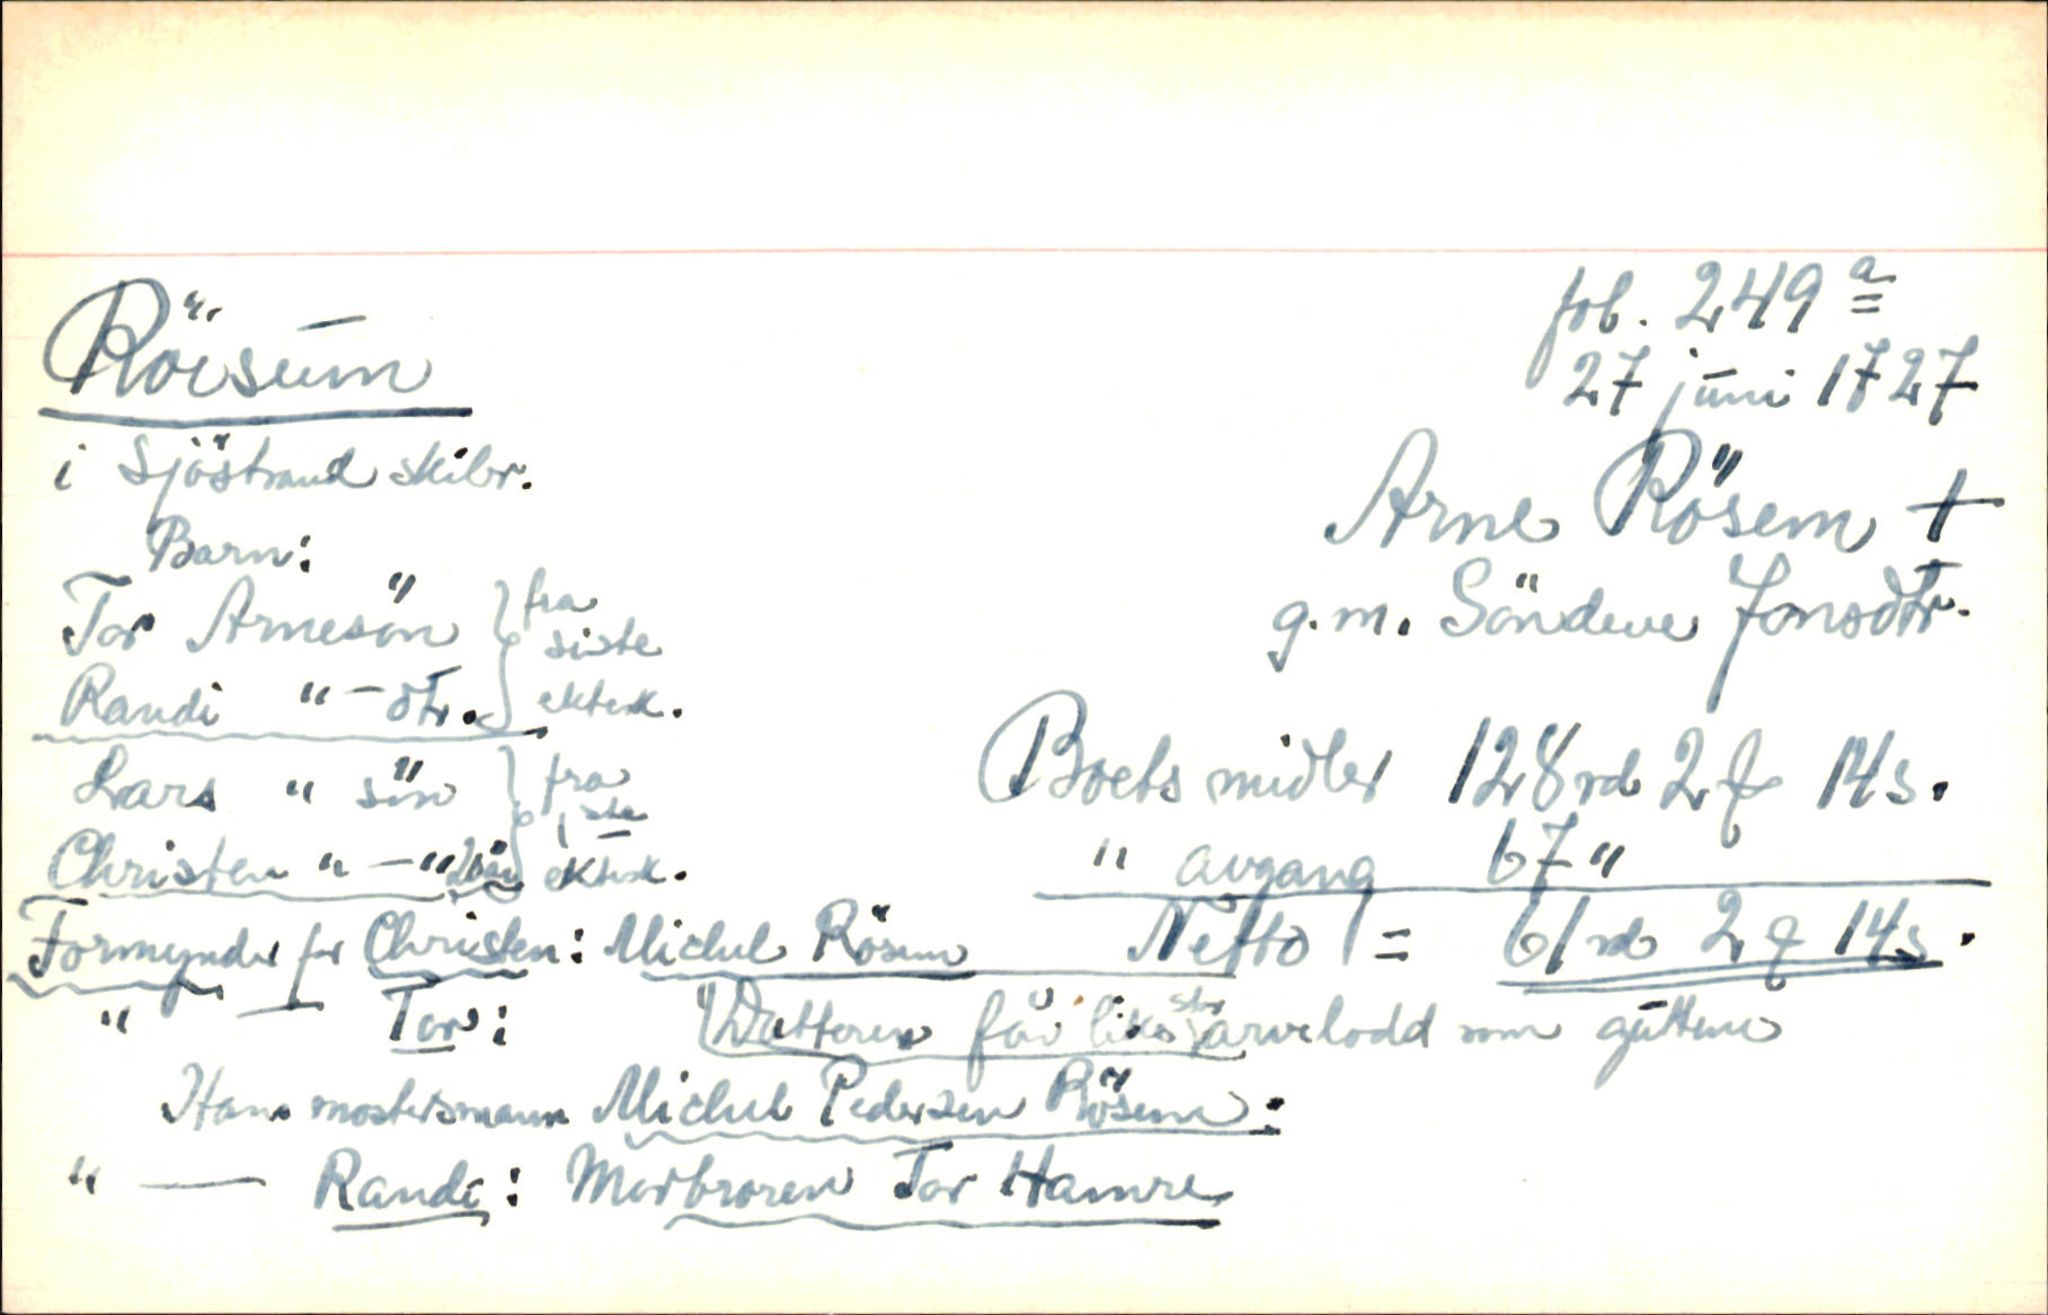 Röisum
fol. 249 a
27 juni 1727
i Sjöstrand skibr.
Arne Rösem +
g.m. Söndeve Jonsdtr.
Barn:
Tor Arnesön } fra siste ektesk.
Randi " - dtr.
Lars " sön } fra 1ste ektesk.
Christen " - "
Boets midler 128 rd 2 q 14 s.
" avgang 67 "
Netto = 61 rd 2 q 14 s.
Formynder for Christen: Michel Rösem
" — Tor:
Datteren får like stor arvelodd som guttene
Hans mostersmann Michel Pedersen Rösem:
" — Randi: Morbroren Tor Hamre